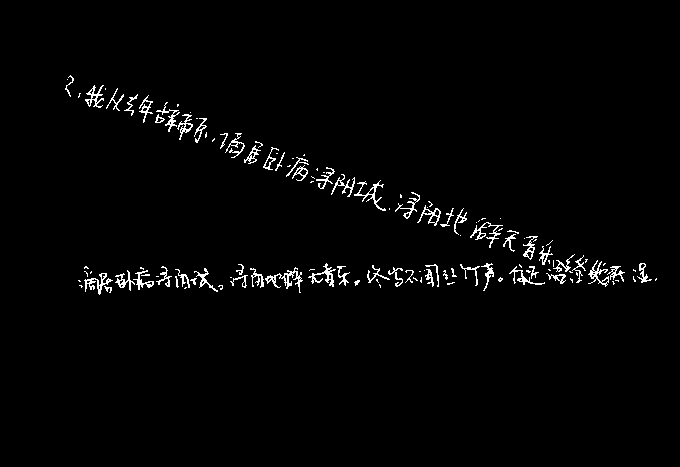 2.我从去年辞帝京,谪居卧病浔阳城.浔阳地僻无音乐
谪居卧病浔阳城。浔阳地僻无音乐。终岁不闻丝竹声。住近湓